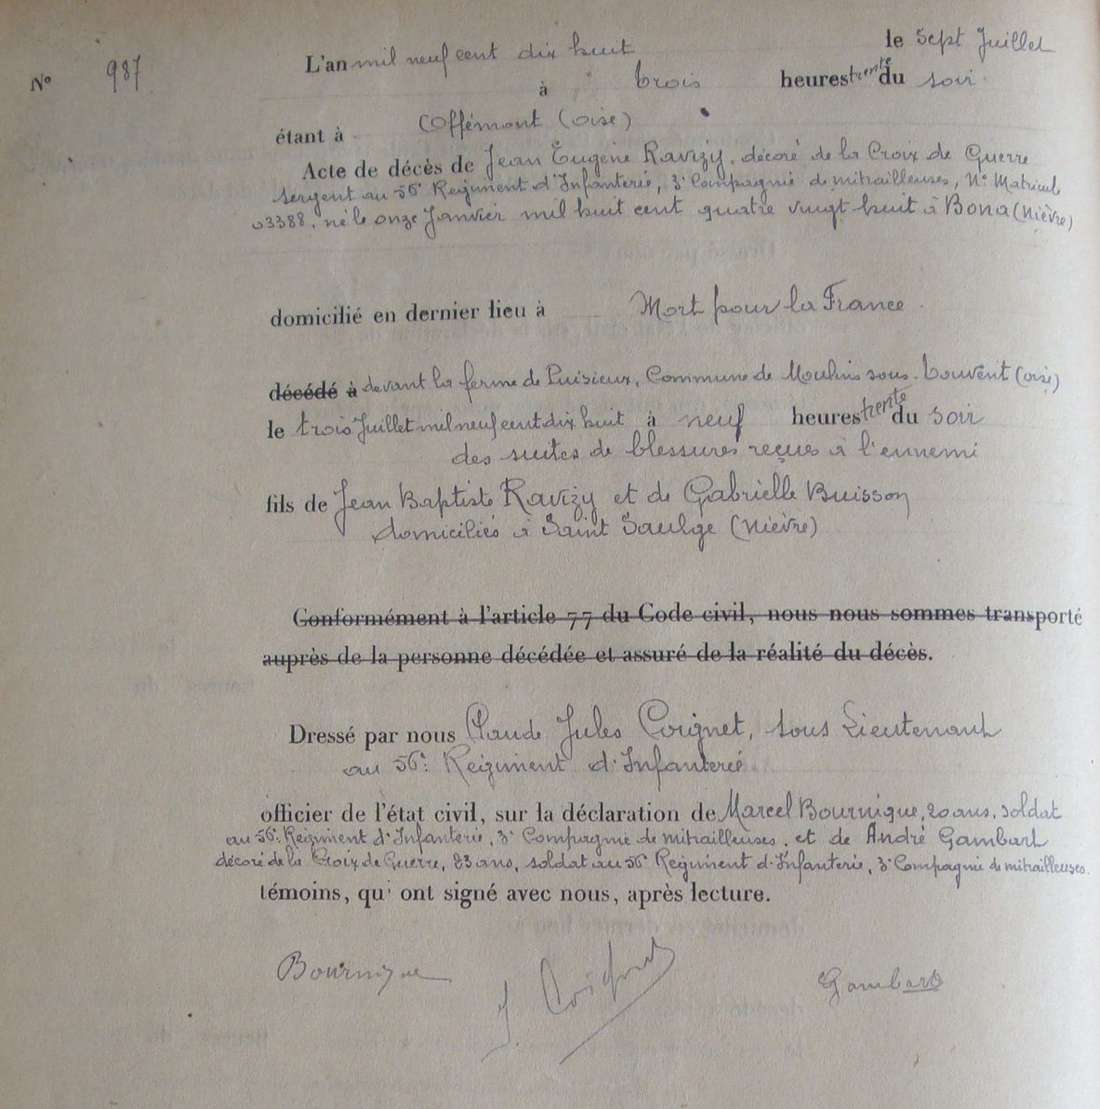 N° 987
L'an mil neuf cent dix huit le sept Juillet
à trois heures trente du soir
étant à Offémont (oise)
Acte de décès de Jean Eugène Ravizy, décoré de la Croix de Guerre
sergent au 56e Regiment d'Infanterie, 3e Compagnie de mitrailleuses, N° Matricul
03388, né le onze Janvier mil huit cent quatre vingt huit à Bona (Nièvre)
domicilié en dernier lieu à Mort pour la France
décédé à devant la ferme de Puisieux, Commune de Moulin sous Touvent (oise)
le trois Juillet mil neuf cent dix huit à neuf heures trente du soir
des suites de blessures reçues à l'ennemi
fils de Jean Baptiste Ravizy et de Gabrielle Buisson
domiciliés à Saint Saulge (Nièvre)
Conformément à l'article 77 du Code civil, nous nous sommes transporté
auprès de la personne décédée et assuré de la réalité du décès.
Dressé par nous Claude Jules Coignet, sous Lieutenant
au 56e Regiment d'Infanterie
officier de l'état civil, sur la déclaration de Marcel Bournique, 20 ans, soldat
au 56e Regiment d'Infanterie, 3e Compagnie de mitrailleuses, et de André Gambart
décoré de la Croix de Guerre, 23 ans, soldat au 56e Regiment d'Infanterie, 3e Compagnie de mitrailleuses.
témoins, qui ont signé avec nous, après lecture.
Bournique J. Coignet Gambart